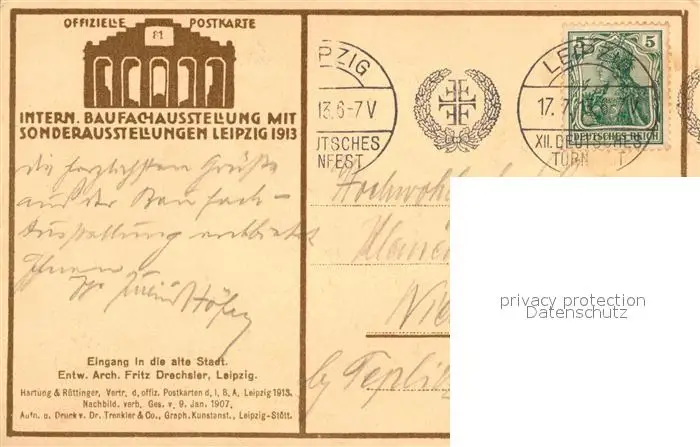 OFFIZIELLE POSTKARTE
81
INTERN. BAUFACHAUSSTELLUNG MIT
SONDERAUSSTELLUNGEN LEIPZIG 1913
die herzlichsten Grüße
aus der Baufach-
Ausstellung entbietet
Ihnen
Eingang in die alte Stadt.
Entw. Arch. Fritz Drechsler, Leipzig.
Hartung & Rüttinger, Vertr. d. offiz. Postkarten d. I. B. A. Leipzig 1913.
Nachbild. verb. Ges. v. 9. Jan. 1907.
Aufn. u. Druck v. Dr. Trenkler & Co., Graph. Kunstanst., Leipzig-Stött.
PZIG
13.6-7V
UTSCHES
NFEST
LEIPZIG
17.7
XII. DEUTSCHES
TURN T
5 5
DEUTSCHES REICH
Hochwohlg
Nie
by Teplitz
privacy protection
Datenschutz